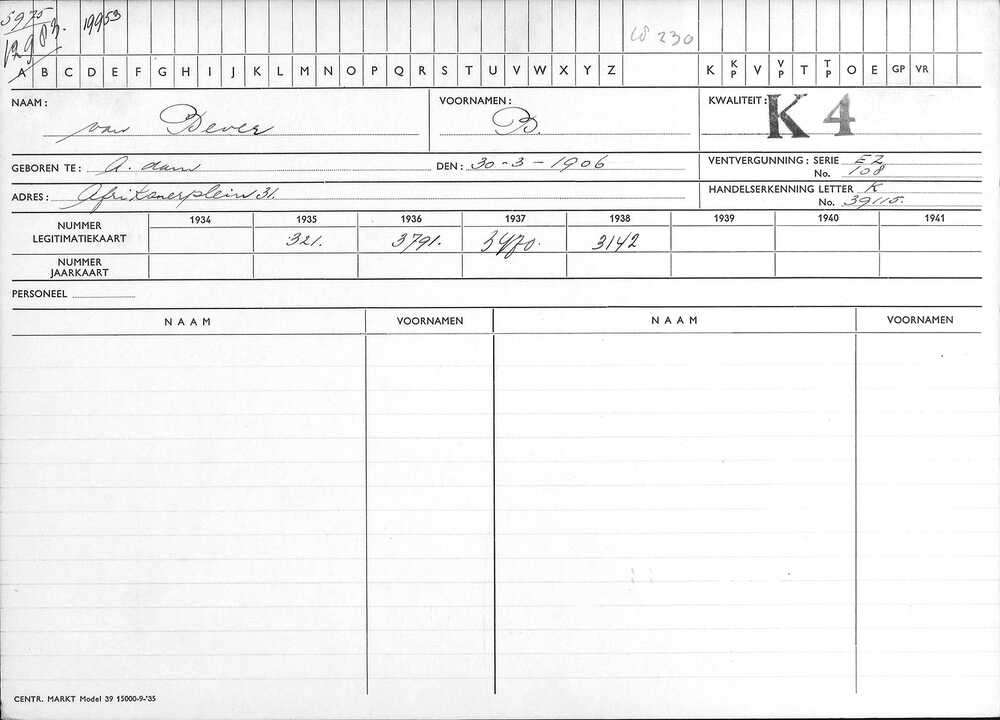 5975
12983. 19953
230
A B C D E F G H I J K L M N O P Q R S T U V W X Y Z K KP V VP T TP O E GP VR
NAAM: van Bever VOORNAMEN: B. KWALITEIT: K 4
GEBOREN TE: A. dam DEN: 30-3-1906 VENTVERGUNNING: SERIE EZ
No. 108
ADRES: Afrikanerplein 31. HANDELSERKENNING LETTER K
No. 39115.
NUMMER LEGITIMATIEKAART 1934 1935 1936 1937 1938 1939 1940 1941
321. 3791. 3470. 3142
NUMMER JAARKAART
PERSONEEL
NAAM VOORNAMEN NAAM VOORNAMEN
CENTR. MARKT Model 39 15000-9-'35